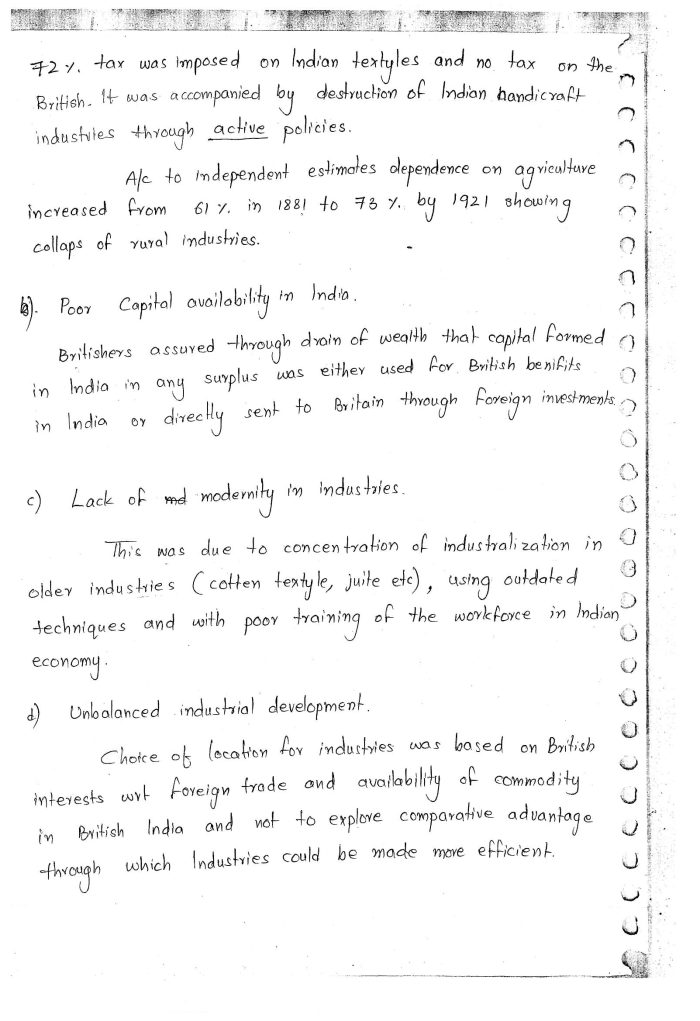 72 %. tax was imposed on Indian textyles and no tax on the
British. It was accompanied by destruction of Indian handicraft
industries through active policies.
A/c to independent estimates dependence on agriculture
increased from 61 %. in 1881 to 73 %. by 1921 showing
collaps of rural industries.
b). Poor Capital availability in India.
Britishers assured through drain of wealth that capital formed
in India in any surplus was either used for British benifits
in India or directly sent to Britain through foreign investments.
c) Lack of md modernity in industries.
This was due to concentration of industralization in
older industries (cotten textyle, juite etc), using outdated
techniques and with poor training of the workforce in Indian
economy.
d) Unbalanced industrial development.
Choice of location for industries was based on British
interests wrt foreign trade and availability of commodity
in British India and not to explore comparative advantage
through which Industries could be made more efficient.